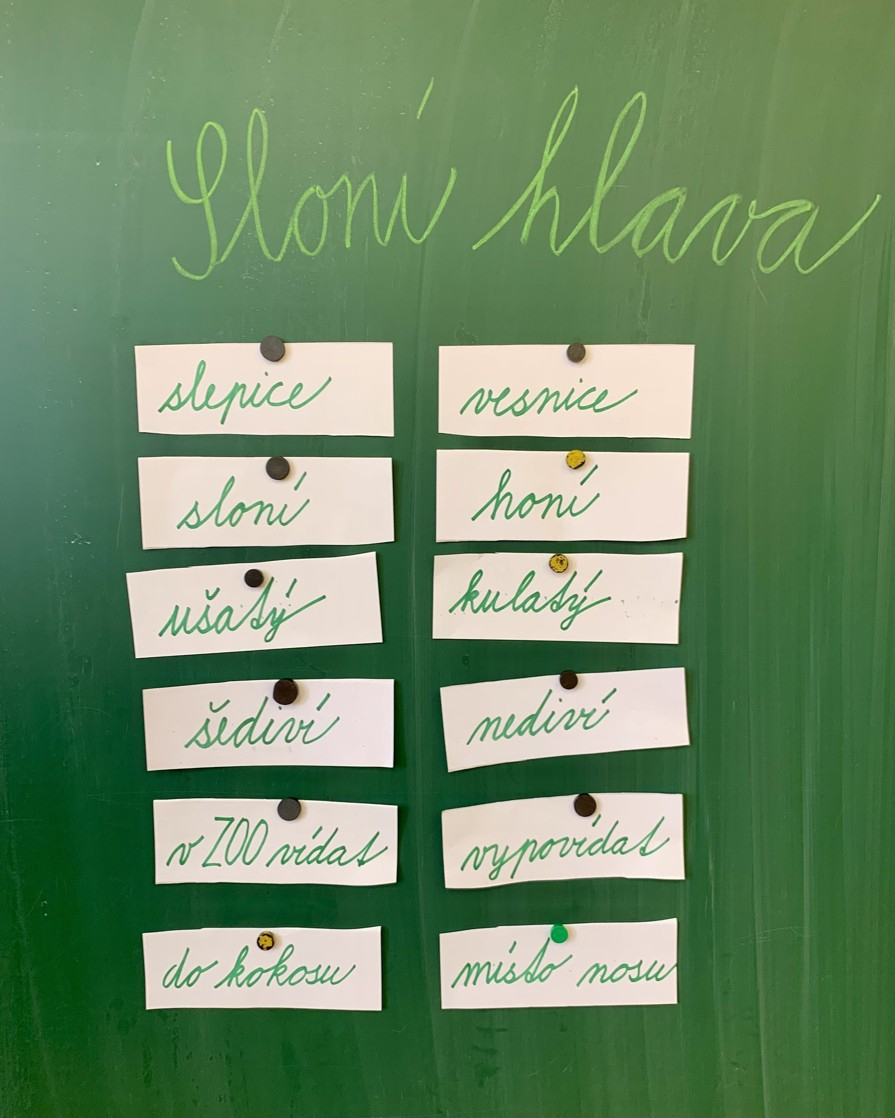 Sloní hlava
slepice vesnice
sloní honí
ušatý kulatý
šediví nediví
v ZOO vídat vypovídat
do kokosu místo nosu